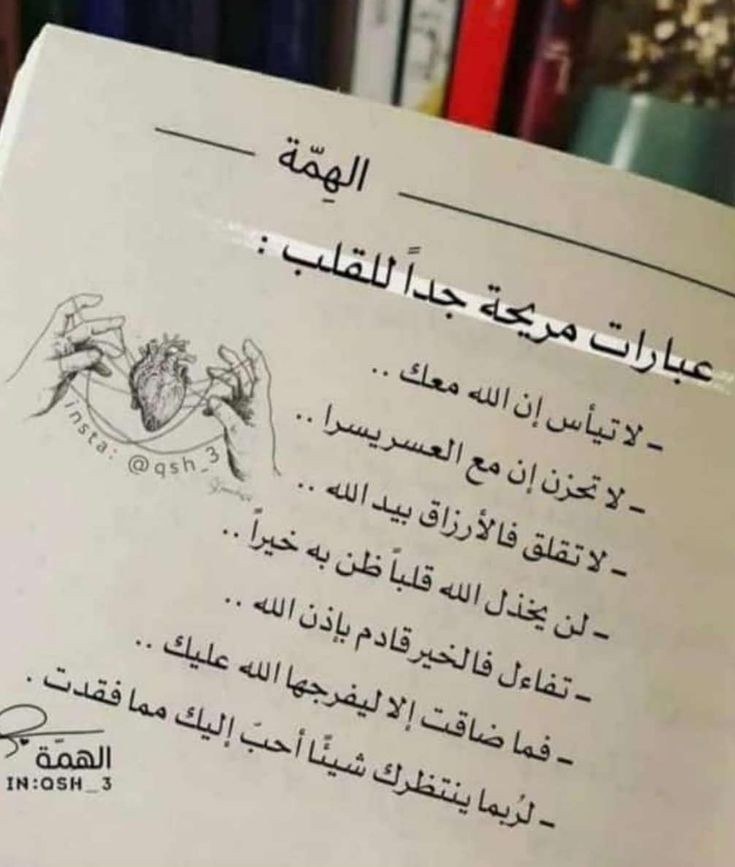 الهِمّة
عبارات مريحة جداً للقلب :
- لا تيأس إن الله معك ..
- لا تحزن إن مع العسر يسرا ..
- لا تقلق فالأرزاق بيد الله ..
- لن يخذل الله قلباً ظن به خيراً ..
- تفاءل فالخير قادم بإذن الله ..
- فما ضاقت إلا ليفرجها الله عليك ..
- لرُبما ينتظرك شيئًا أحبَ إليك مما فقدت .
insta: @qsh_3
الهمّة
IN:QSH_3